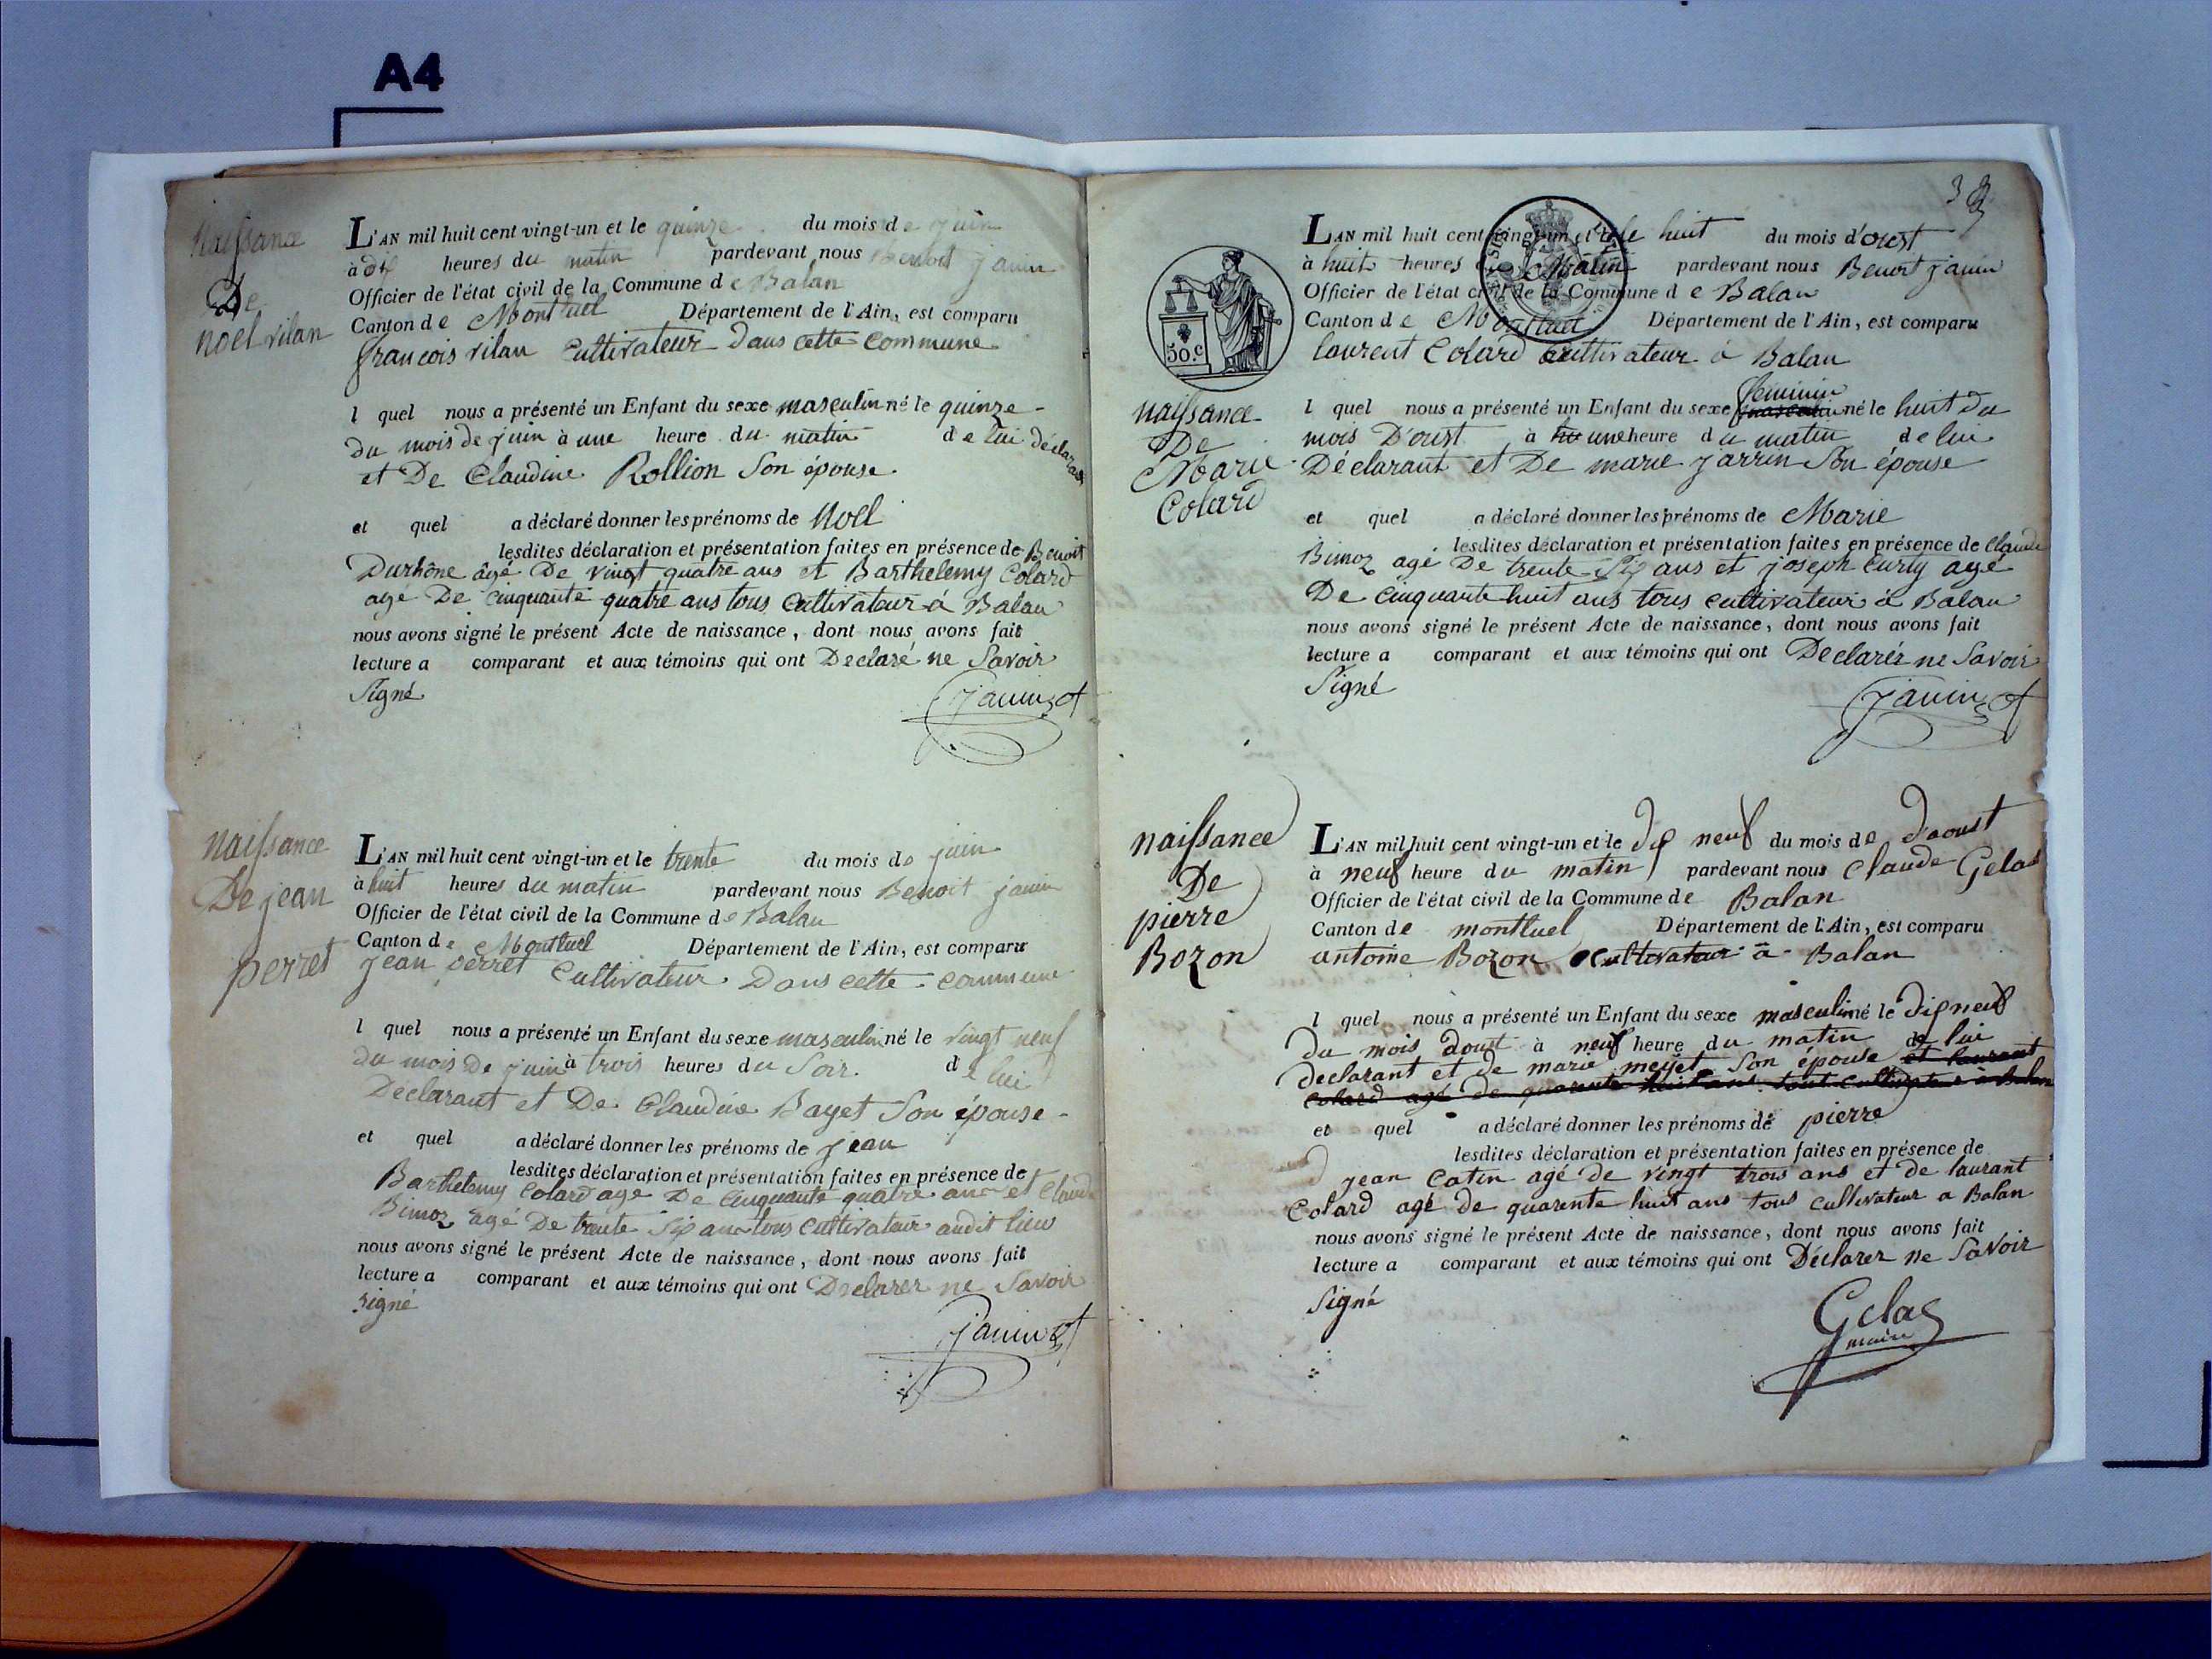 A4
naissance
De
noel vilan
L'AN mil huit cent vingt-un et le quinze du mois de juin
à dix heures du matin pardevant nous Benoit janin
Officier de l'état civil de la Commune de Balan
Canton de Montluel Département de l'Ain, est comparu
francois vilan Cultivateur Dans cette Commune
l quel nous a présenté un Enfant du sexe masculin né le quinze
du mois de juin à une heure du matin de lui déclarant
et De Claudine Rollion Son épouse
et quel a déclaré donner les prénoms de Noel
lesdites déclaration et présentation faites en présence de Benoit
Durhône âgé De vingt quatre ans et Barthelemy Colard
age De cinquante quatre ans tous Cultivateur à Balan
nous avons signé le présent Acte de naissance, dont nous avons fait
lecture a comparant et aux témoins qui ont Declaré ne Savoir
Signé
janin
naissance
De jean
perret
L'AN mil huit cent vingt-un et le trente du mois de juin
à huit heures du matin pardevant nous Benoit janin
Officier de l'état civil de la Commune de Balan
Canton de Montluel Département de l'Ain, est comparu
jean perret Cultivateur Dans cette commune
l quel nous a présenté un Enfant du sexe masculin né le vingt neuf
du mois De juin à trois heures du Soir. de lui
Déclarant et De Claudine Bayet Son épouse
et quel a déclaré donner les prénoms de jean
lesdites déclaration et présentation faites en présence de
Barthelemy Colard age De Cinquante quatre ans et Claude
Bimoz agé De trente Six ans tous Cultivateur audit lieu
nous avons signé le présent Acte de naissance, dont nous avons fait
lecture a comparant et aux témoins qui ont Declarer ne Savoir
signé
janin
3
50.c
naissance
De
Marie
Colard
L'AN mil huit cent vingt-un et le huit du mois d'oust
à huit heures du Matin pardevant nous Benoit janin
Officier de l'état civil de la Commune de Balan
Canton de Montluel Département de l'Ain, est comparu
laurent Colard cultivateur à Balan
feminin
l quel nous a présenté un Enfant du sexe masculin né le huit du
mois D'oust à une heure du matin de lui
Déclarant et De marie jarrin Son épouse
et quel a déclaré donner les prénoms de Marie
lesdites déclaration et présentation faites en présence de Claude
Bimoz agé De trente Six ans et joseph Curty agé
De cinquante huit ans tous cultivateur à Balan
nous avons signé le présent Acte de naissance, dont nous avons fait
lecture a comparant et aux témoins qui ont Declarér ne Savoir
Signé
janin
naissance
De
pierre
Bozon
L'AN mil huit cent vingt-un et le dix neuf du mois de d'aoust
à neuf heure du matin pardevant nous Claude Gelas
Officier de l'état civil de la Commune de Balan
Canton de montluel Département de l'Ain, est comparu
antoine Bozon Cultivateur à Balan
l quel nous a présenté un Enfant du sexe masculin né le dix neuf
du mois doust à neuf heure du matin de lui
declarant et de marie meyet Son épouse et laurant
Colard agé de quarente huit ans tout cultivateur à Balan
et quel a déclaré donner les prénoms de pierre
lesdites déclaration et présentation faites en présence de
jean Catin agé de vingt trois ans et de laurant
Colard agé de quarente huit ans tous cultivateur a Balan
nous avons signé le présent Acte de naissance, dont nous avons fait
lecture a comparant et aux témoins qui ont Déclarer ne Savoir
Signé
Gelas
maire